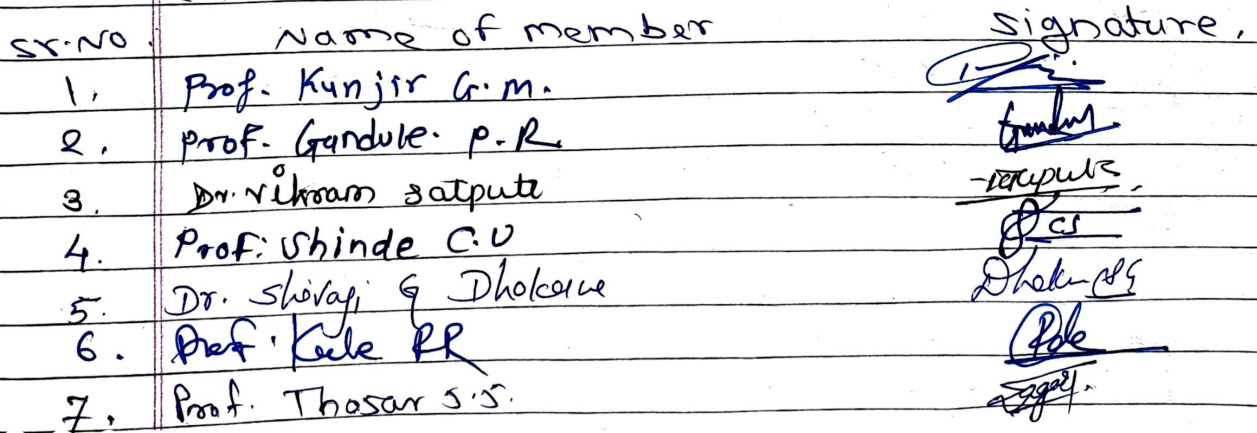 Sr.No. Name of member Signature.
1. Prof. Kunjir G.M.
2. Prof. Gandule. P.R.
3. Dr. Vikram Satpute
4. Prof: Shinde C.U
5. Dr. Shivaji G Dhokane
6. Prof. Kale RR
7. Prof. Thosar S.S.